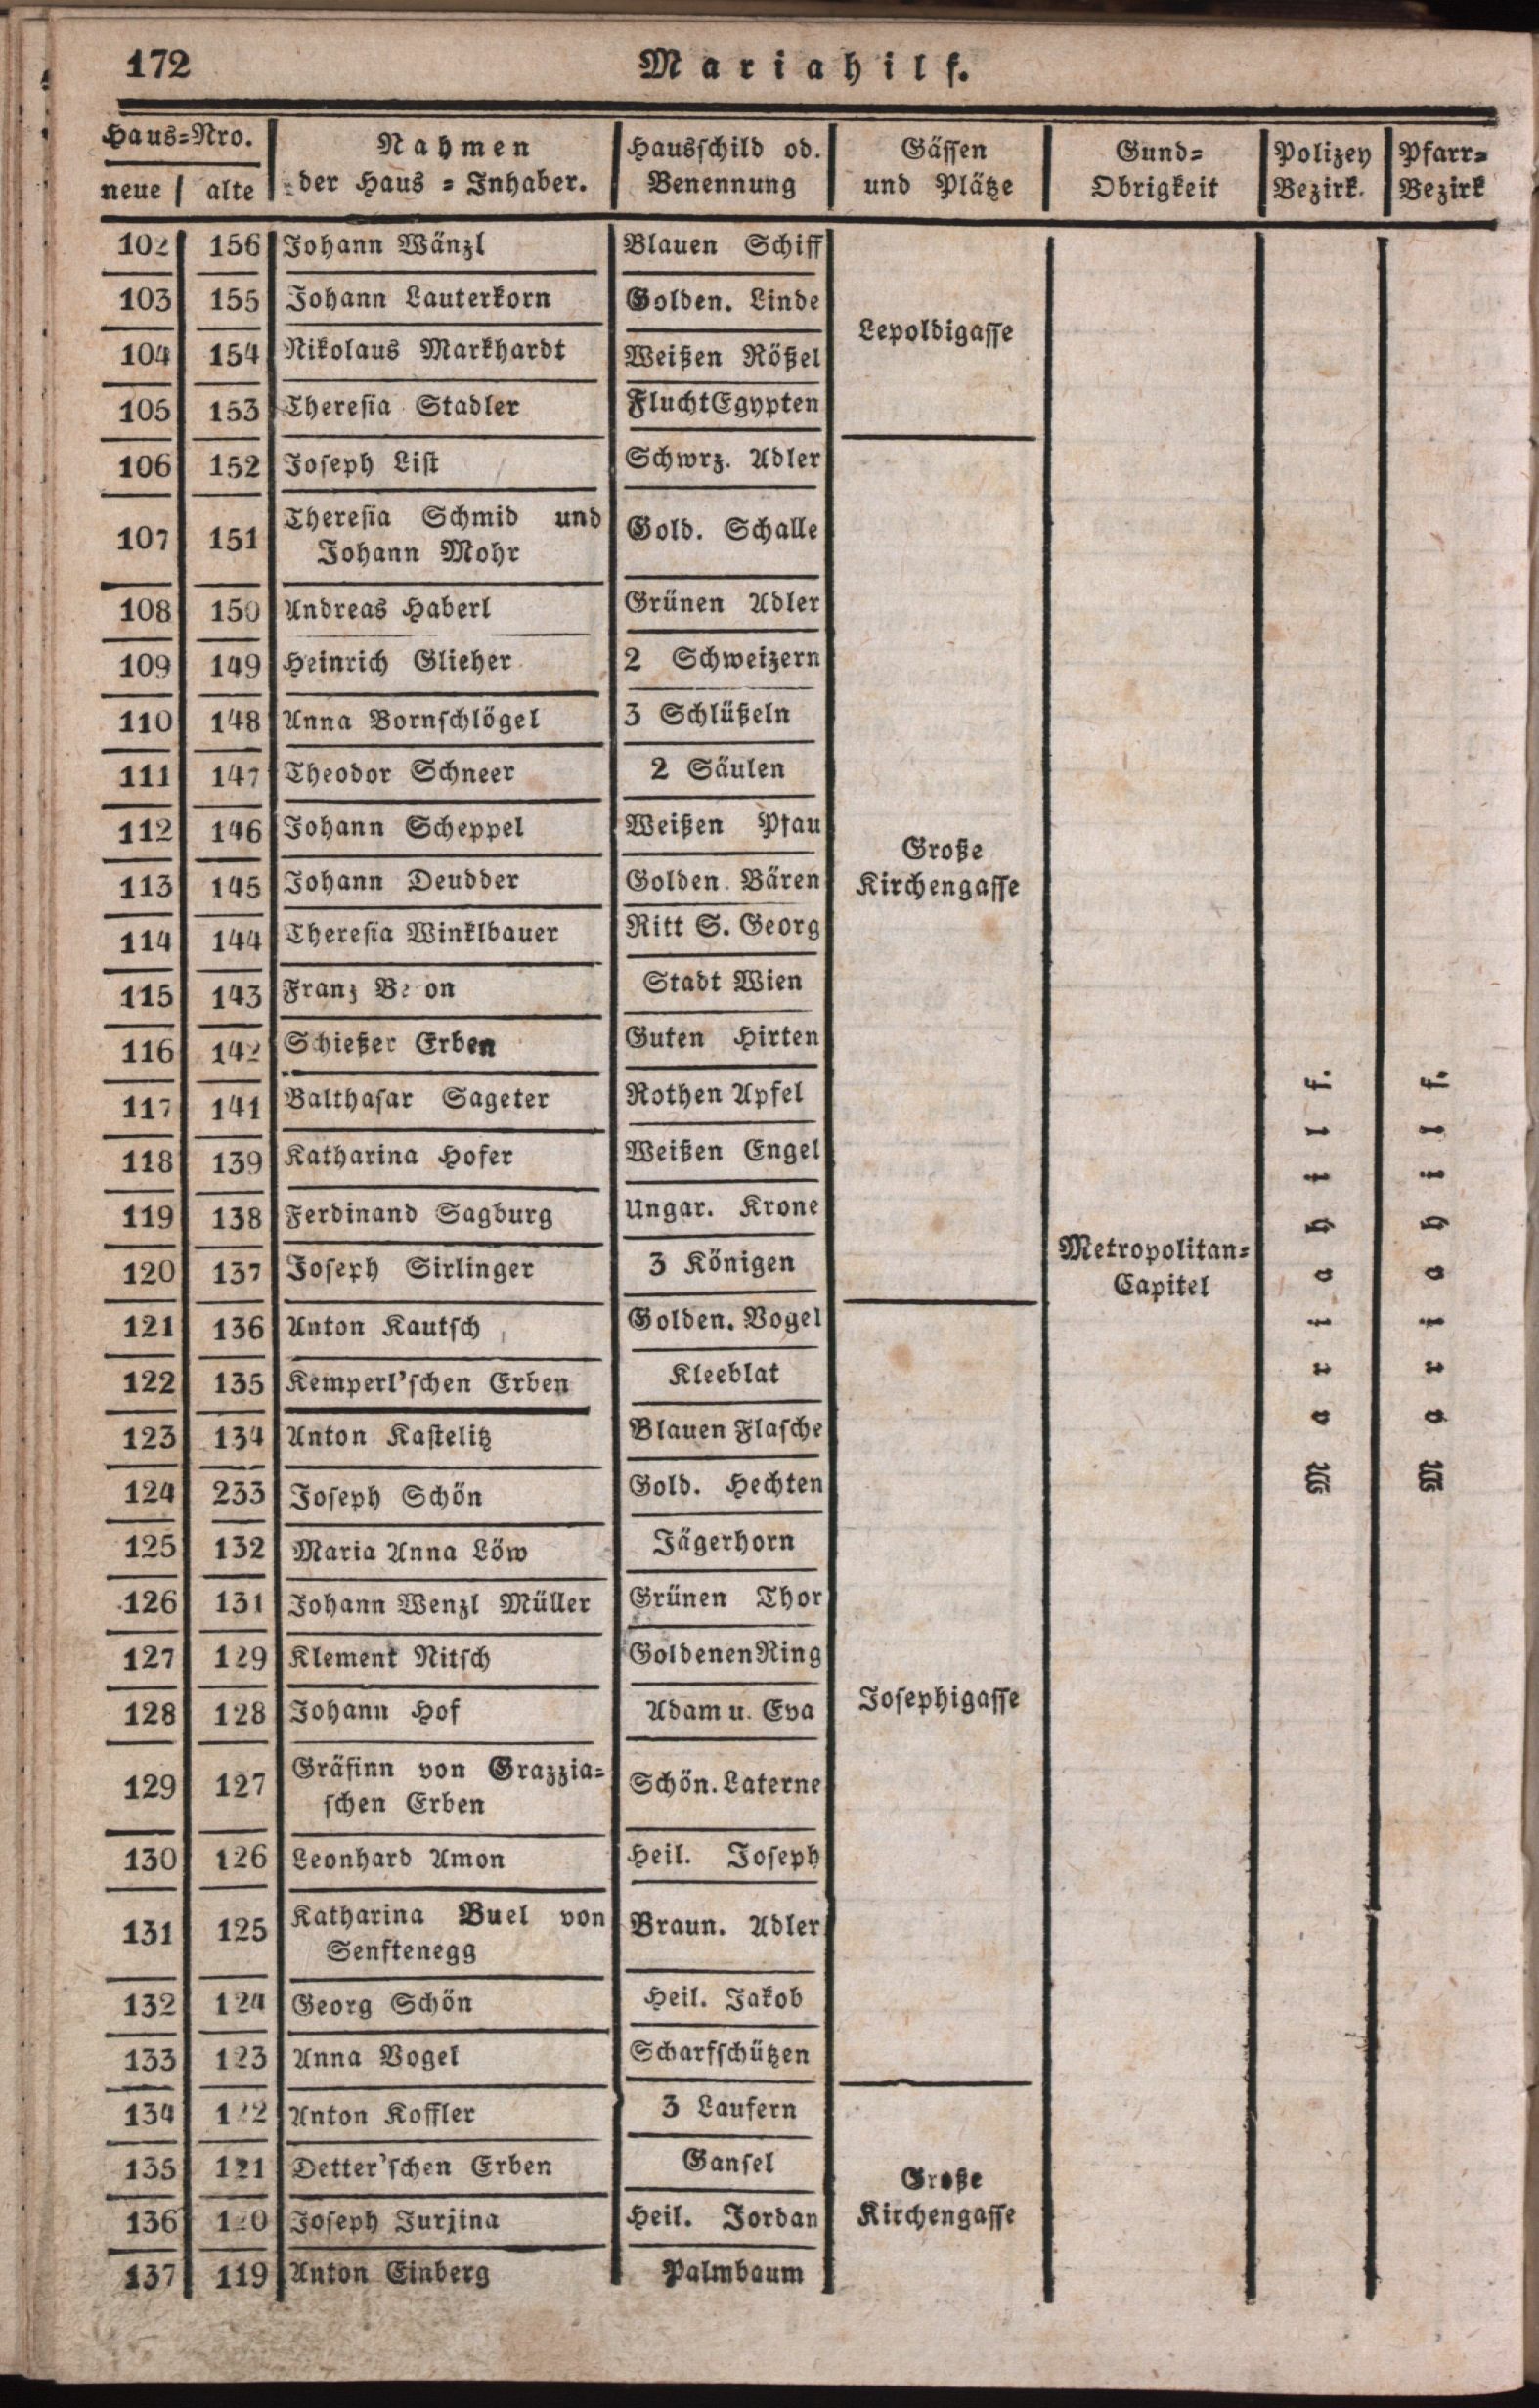 172 Mariahilf.
Haus=Nro. Nahmen Hausschild od. Gässen Gund= Polizey Pfarr=
neue alte der Haus = Inhaber. Benennung und Plätze Obrigkeit Bezirk. Bezirk
102 156 Johann Wänzl Blauen Schiff
103 155 Johann Lauterkorn Golden. Linde
Lepoldigasse
104 154 Nikolaus Markhardt Weißen Rößel
105 153 Theresia Stadler Flucht Egypten
106 152 Joseph List Schwrz. Adler
107 151 Theresia Schmid und Gold. Schalle
Johann Mohr
108 150 Andreas Haberl Grünen Adler
109 149 Heinrich Glieher 2 Schweizern
110 148 Anna Bornschlögel 3 Schlüßeln
111 147 Theodor Schneer 2 Säulen
112 146 Johann Scheppel Weißen Pfau
Große
Kirchengasse
113 145 Johann Deudder Golden. Bären
114 144 Theresia Winklbauer Ritt S. Georg
115 143 Franz Stadt Wien
116 142 Schießer Erben Guten Hirten
117 141 Balthasar Sageter Rothen Apfel
118 139 Katharina Hofer Weißen Engel
119 138 Ferdinand Sagburg Ungar. Krone
120 137 Joseph Sirlinger 3 Königen
Metropolitan=
Capitel
Mariahilf.
Mariahilf.
121 136 Anton Kautsch Golden. Vogel
122 135 Kemperl'schen Erben Kleeblat
123 134 Anton Kastelitz Blauen Flasche
124 233 Joseph Schön Gold. Hechten
125 132 Maria Anna Löw Jägerhorn
126 131 Johann Wenzl Müller Grünen Thor
127 129 Klement Nitsch Goldenen Ring
128 128 Johann Hof Adam u. Eva Josephigasse
129 127 Gräfinn von Grazzia= Schön. Laterne
schen Erben
130 126 Leonhard Amon Heil. Joseph
131 125 Katharina Buel von Braun. Adler
Senftenegg
132 124 Georg Schön Heil. Jakob
133 123 Anna Vogel Scharfschützen
134 122 Anton Koffler 3 Laufern
135 121 Detter'schen Erben Gansel
Große
Kirchengasse
136 120 Joseph Jurjina Heil. Jordan
137 119 Anton Einberg Palmbaum